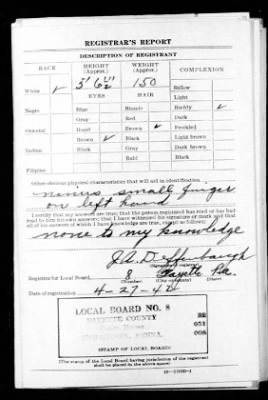 REGISTRAR'S REPORT
DESCRIPTION OF REGISTRANT
RACE HEIGHT (Approx.) WEIGHT (Approx.) COMPLEXION
White ✓ 5' 6½" 150 Sallow
EYES HAIR Light
Negro Blue Blonde Ruddy ✓
Gray Red Dark
Oriental Hazel Brown ✓ Freckled
Brown ✓ Black Light brown
Indian Black Gray Dark brown
Bald Black
Filipino
Other obvious physical characteristics that will aid in identification
minus small finger
on left hand
I certify that my answers are true; that the person registered has read or has had
read to him his own answers; that I have witnessed his signature or mark and that
all of his answers of which I have knowledge are true, except as follows:
none to my knowledge
J. A. Deffenbaugh
Registrar for Local Board 8 Fayette Pa.
(Number) (City or county) (State)
Date of registration 4-27-42
LOCAL BOARD NO. 8
FAYETTE COUNTY
PENNA.
STAMP OF LOCAL BOARD
(The stamp of the Local Board having jurisdiction of the registrant
shall be placed in the above space)